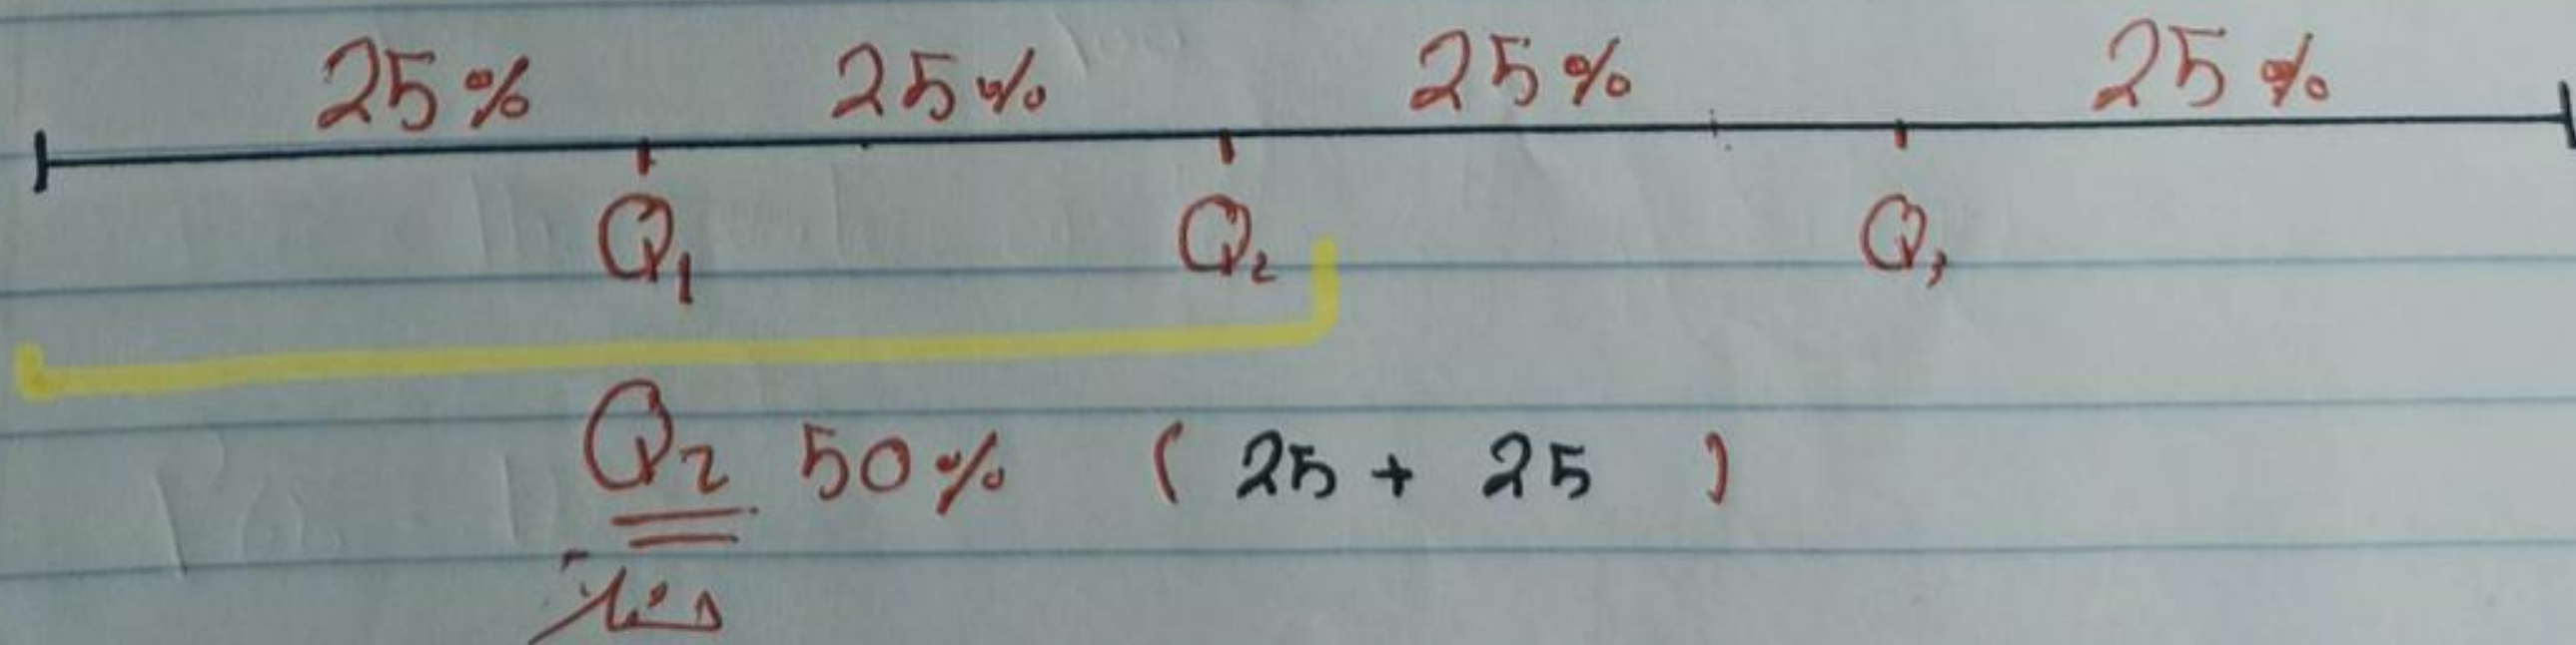 25% 25% 25% 25%
Q1 Q2 Q3
Q2 50% ( 25 + 25 )